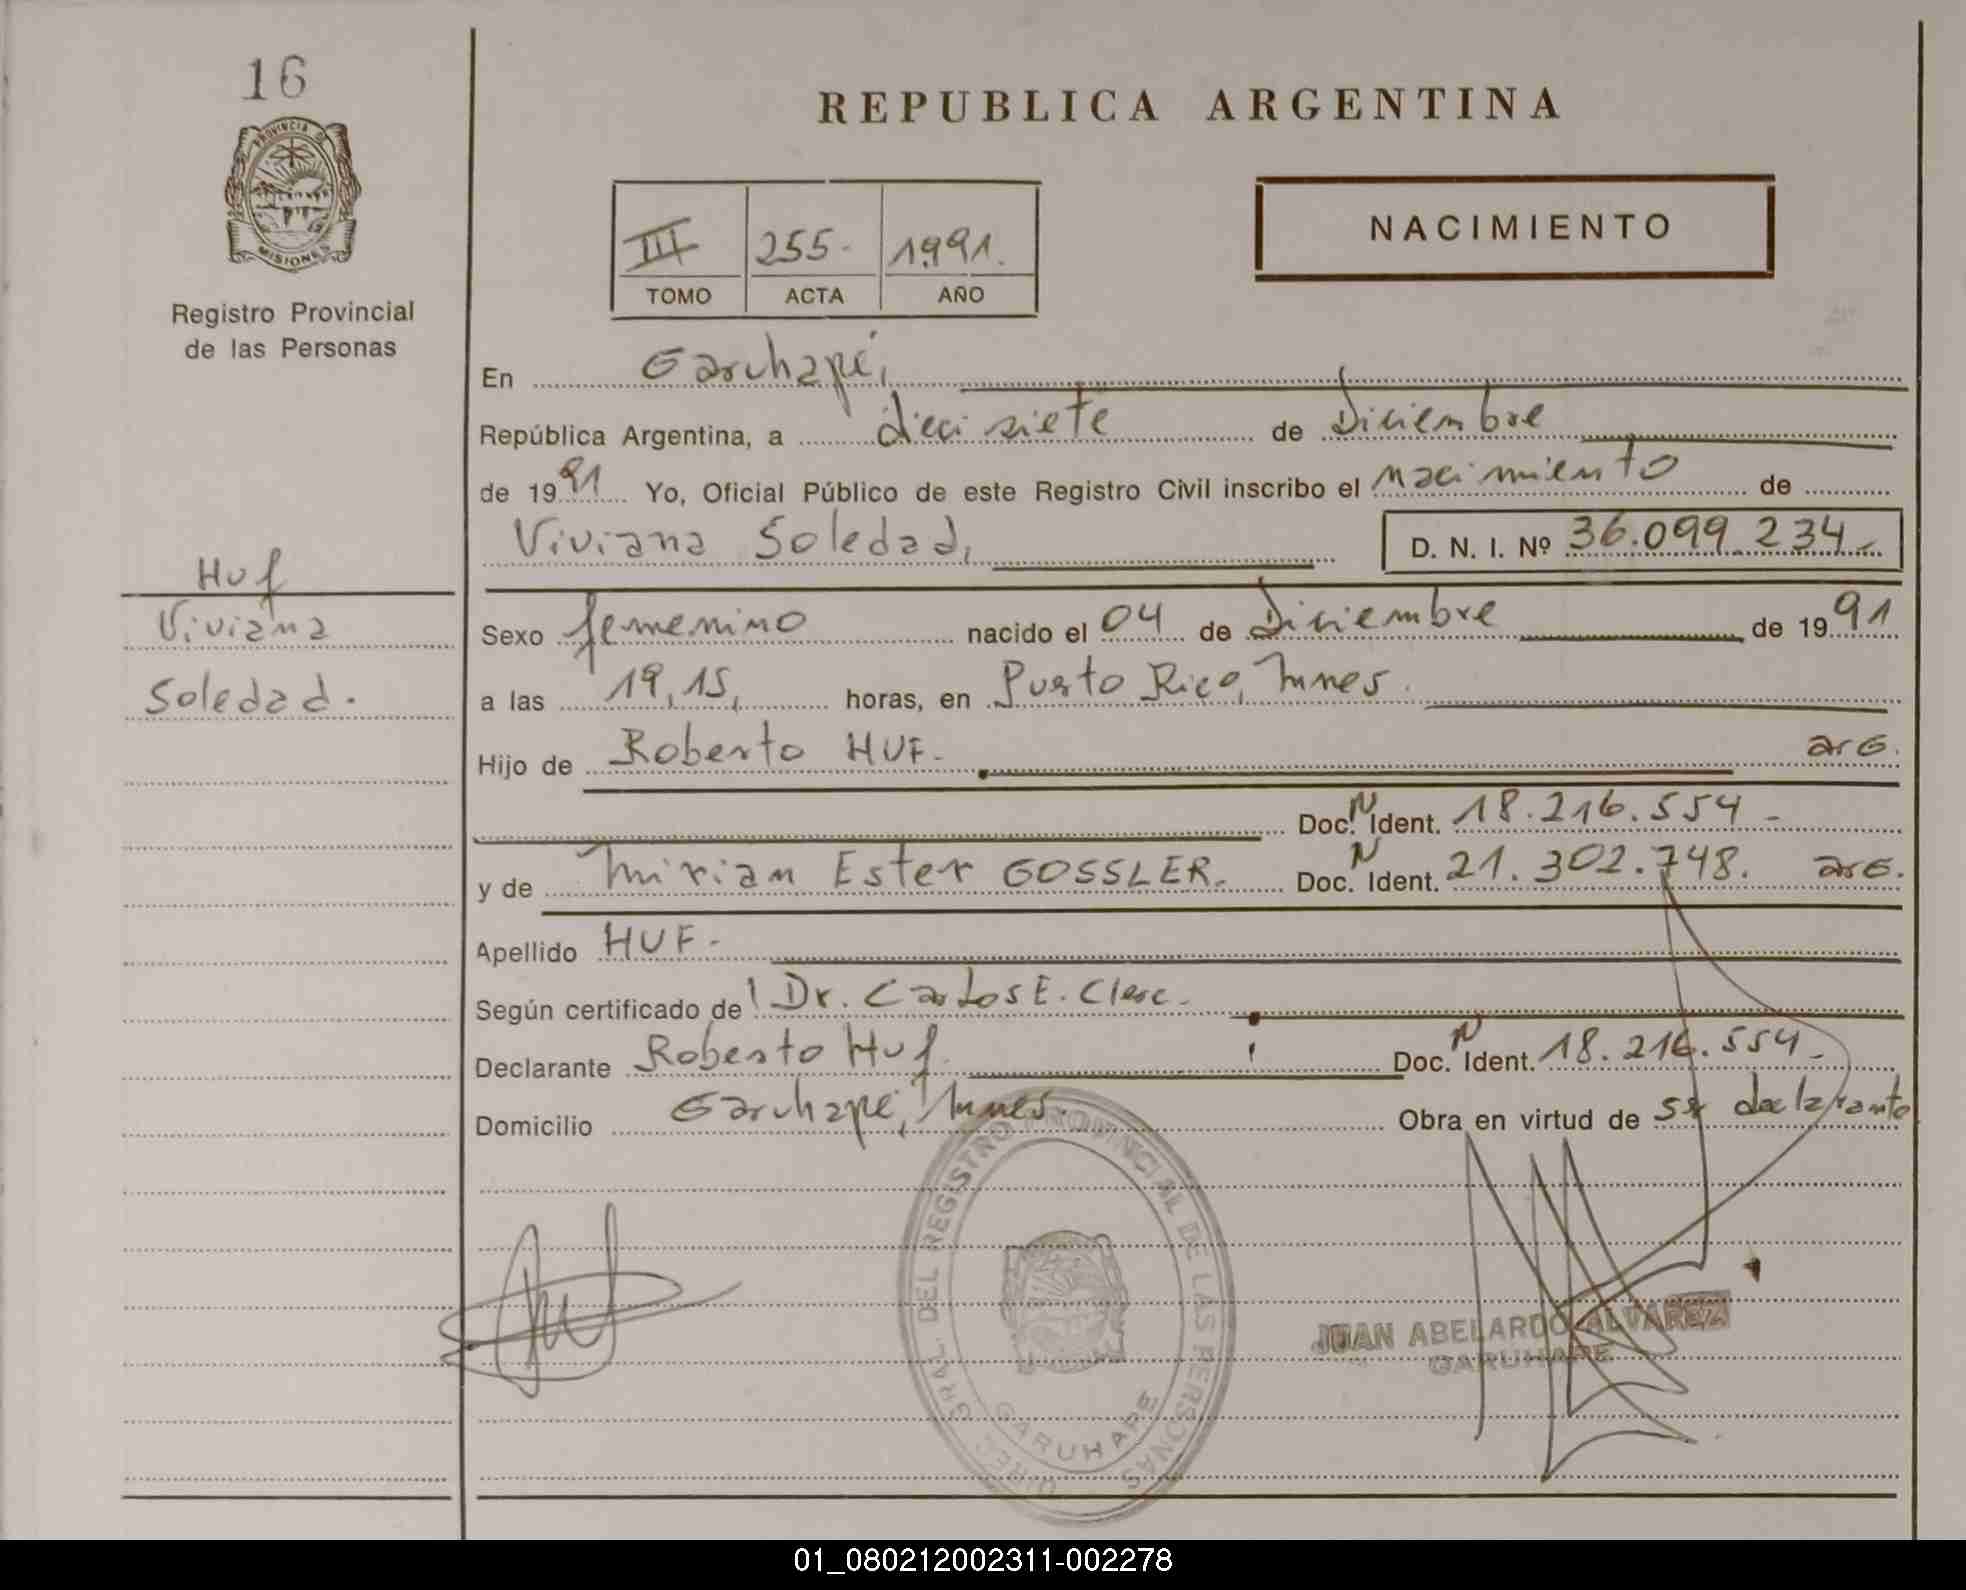 16
PROVINCIA DE
MISIONES
Registro Provincial
de las Personas
Huf
Viviana
Soledad.
REPUBLICA ARGENTINA
NACIMIENTO
III 255- 1991.
TOMO ACTA AÑO
En Garuhapé,
República Argentina, a dieci siete de Diciembre
de 1991 Yo, Oficial Público de este Registro Civil inscribo el nacimiento de
Viviana Soledad, D. N. I. Nº 36.099.234-
Sexo femenino nacido el 04 de Diciembre de 1991
a las 19,15, horas, en Puerto Rico, Mnes.
Hijo de Roberto HUF. arg.
Doc. N Ident. 18.216.554-
y de Mirian Ester GOSSLER. Doc. N Ident. 21.302.748. arg.
Apellido HUF.-
Según certificado de Dr. Carlos E. Clerc.-
Declarante Roberto Huf. Doc. N Ident. 18.216.554-
Domicilio Garuhapé, Mnes. Obra en virtud de ser declarante
DIREC. GRAL. DEL REGISTRO PROVINCIAL DE LAS PERSONAS
GARUHAPE
JUAN ABELARDO ALVAREZ
GARUHAPE
01_080212002311-002278